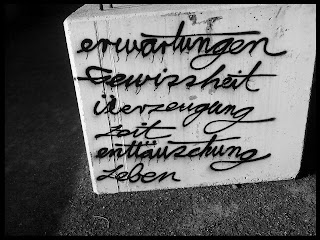 erwartungen
Gewissheit
Überzeugung
zeit
enttäuschung
Leben